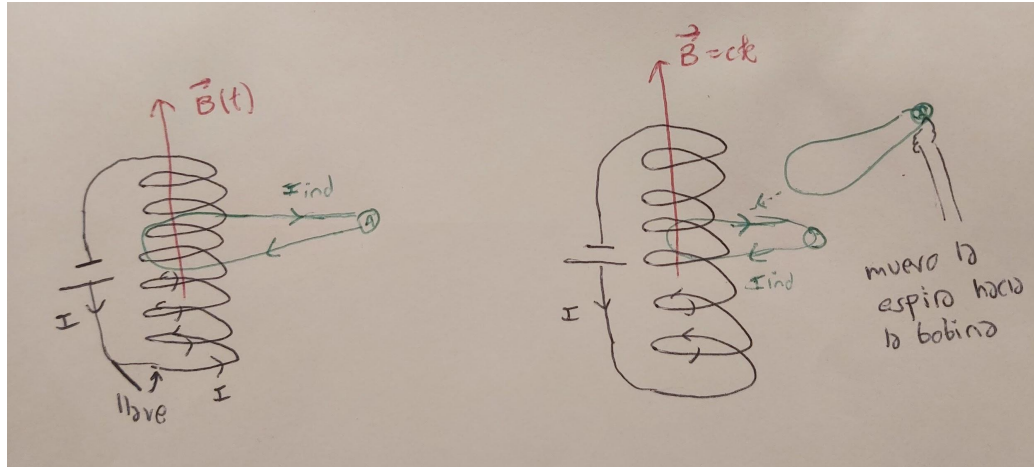 B⃗(t)
I ind
A
I
llave
I
B⃗=cte
I ind
I
muevo la
espira hacia
la bobina